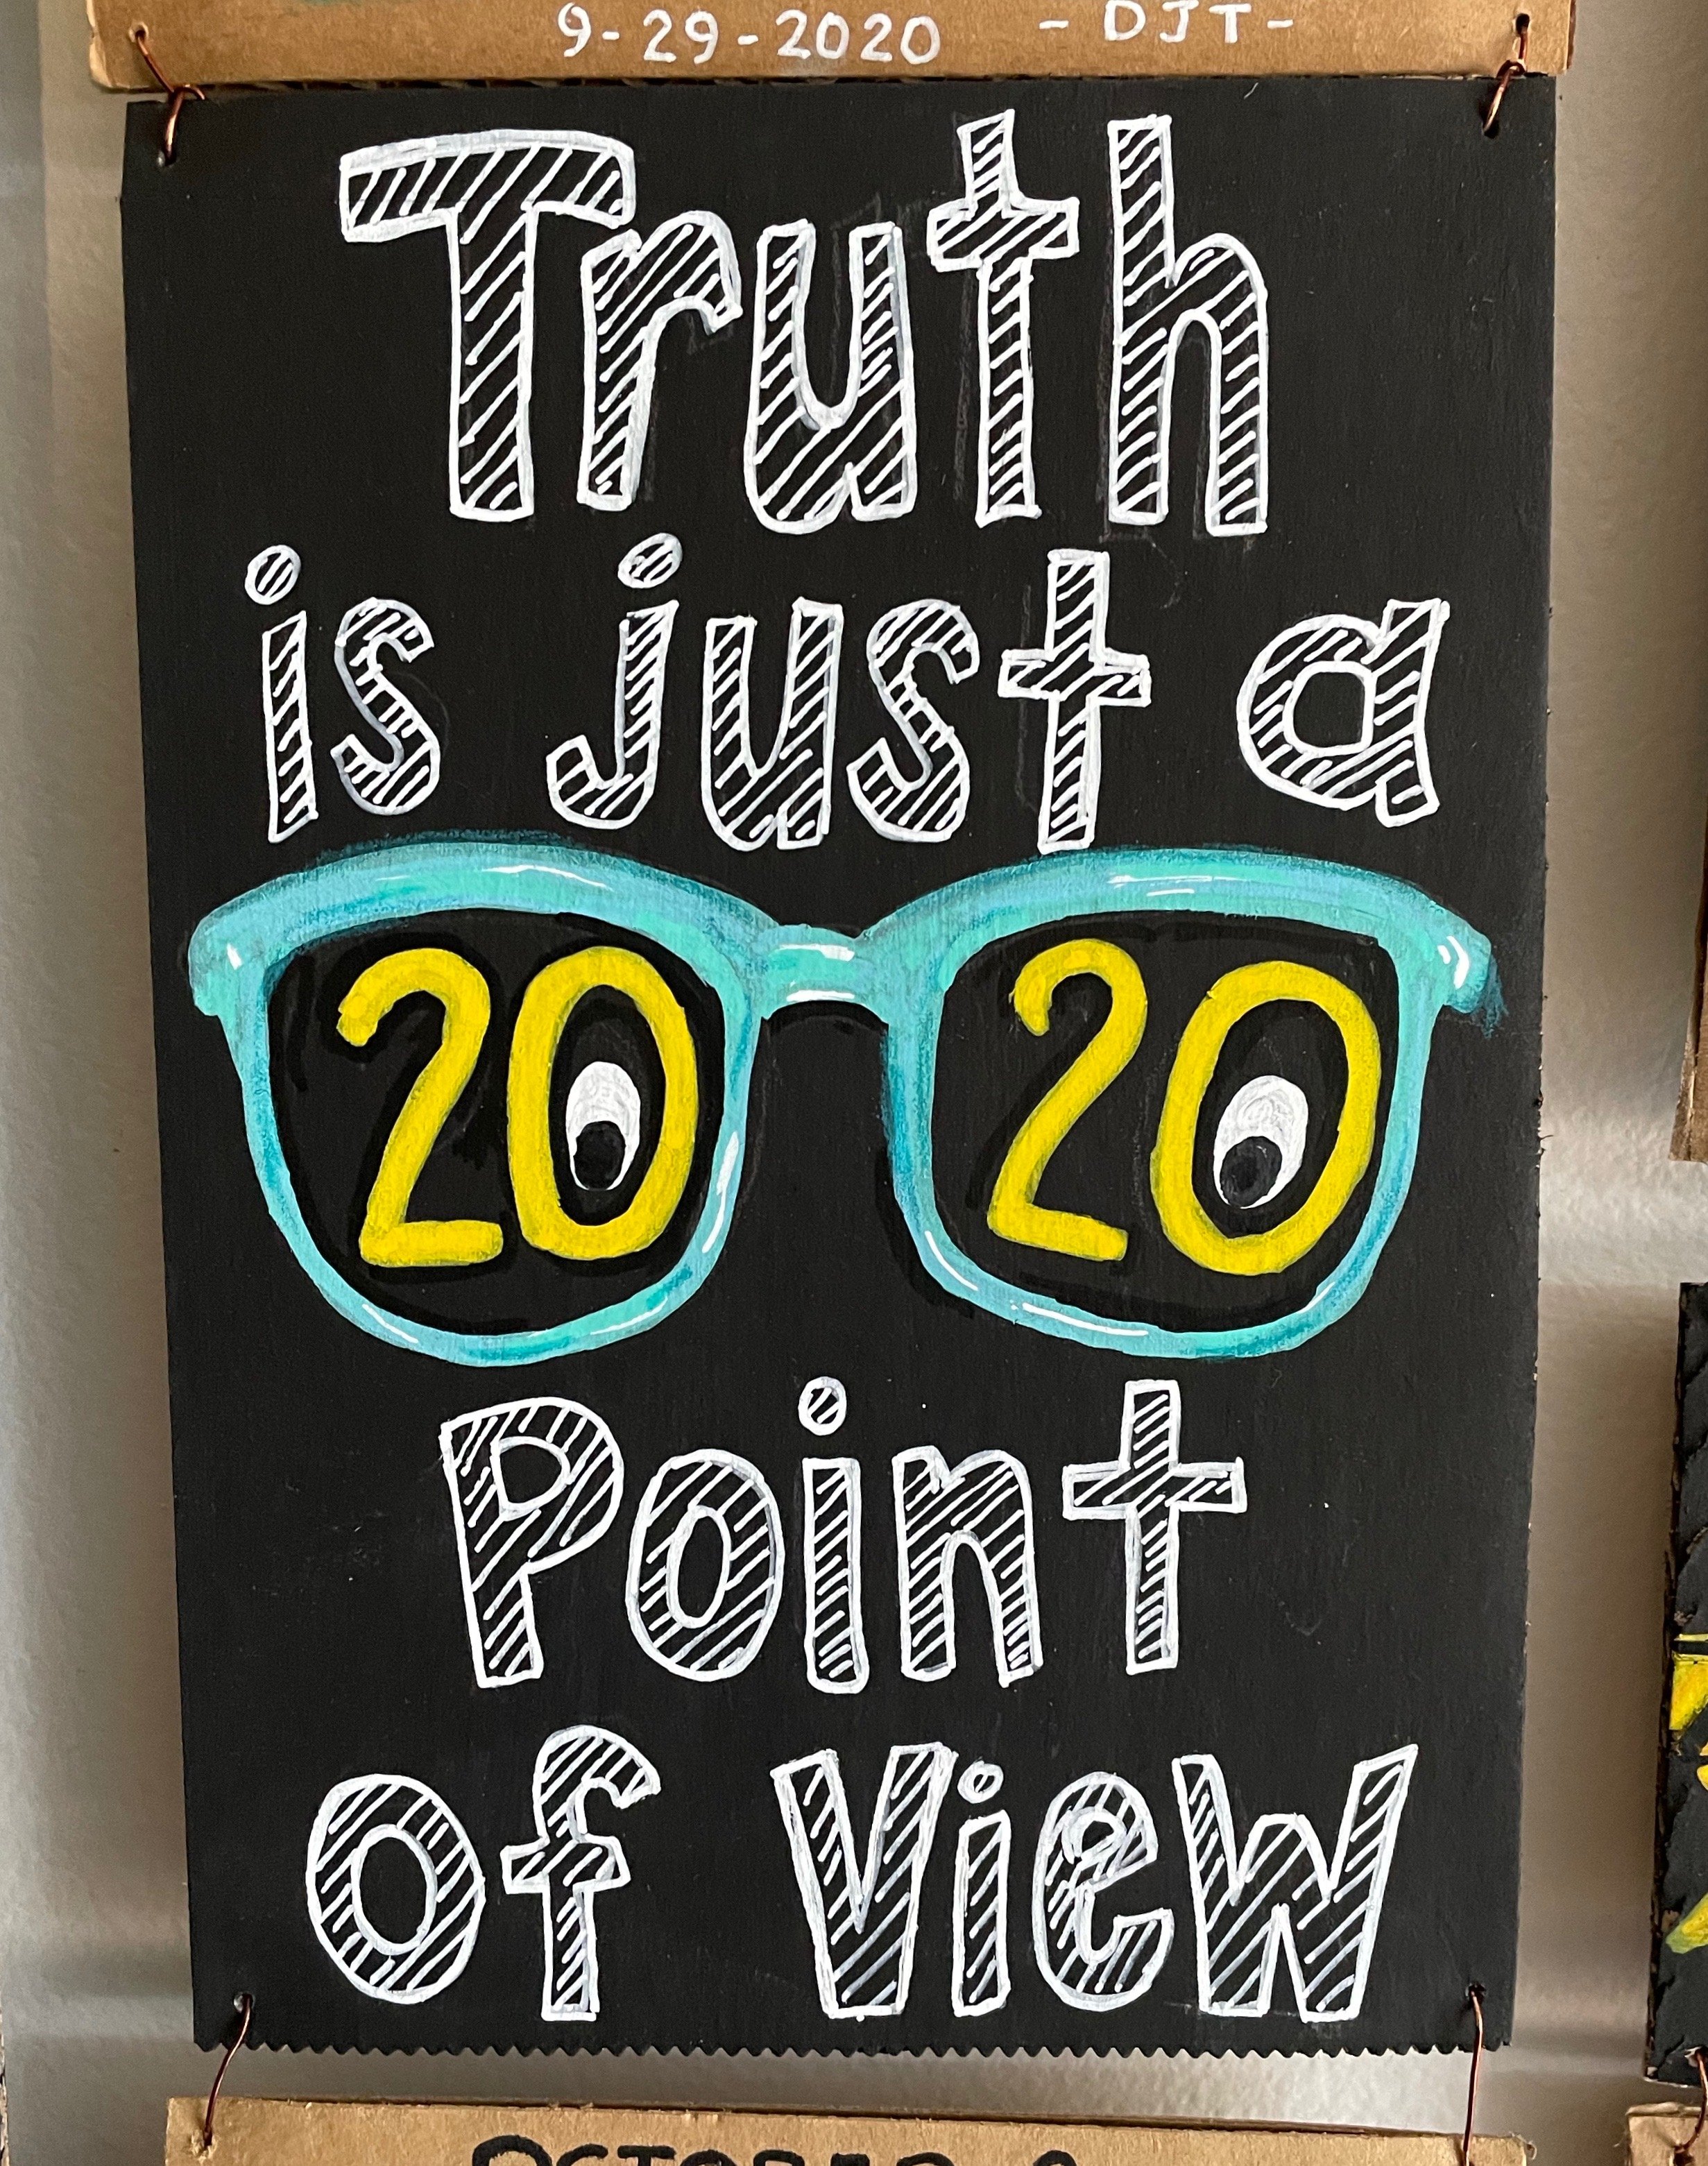 9-29-2020 -DJT-
Truth
is just a
20 20
Point
of View